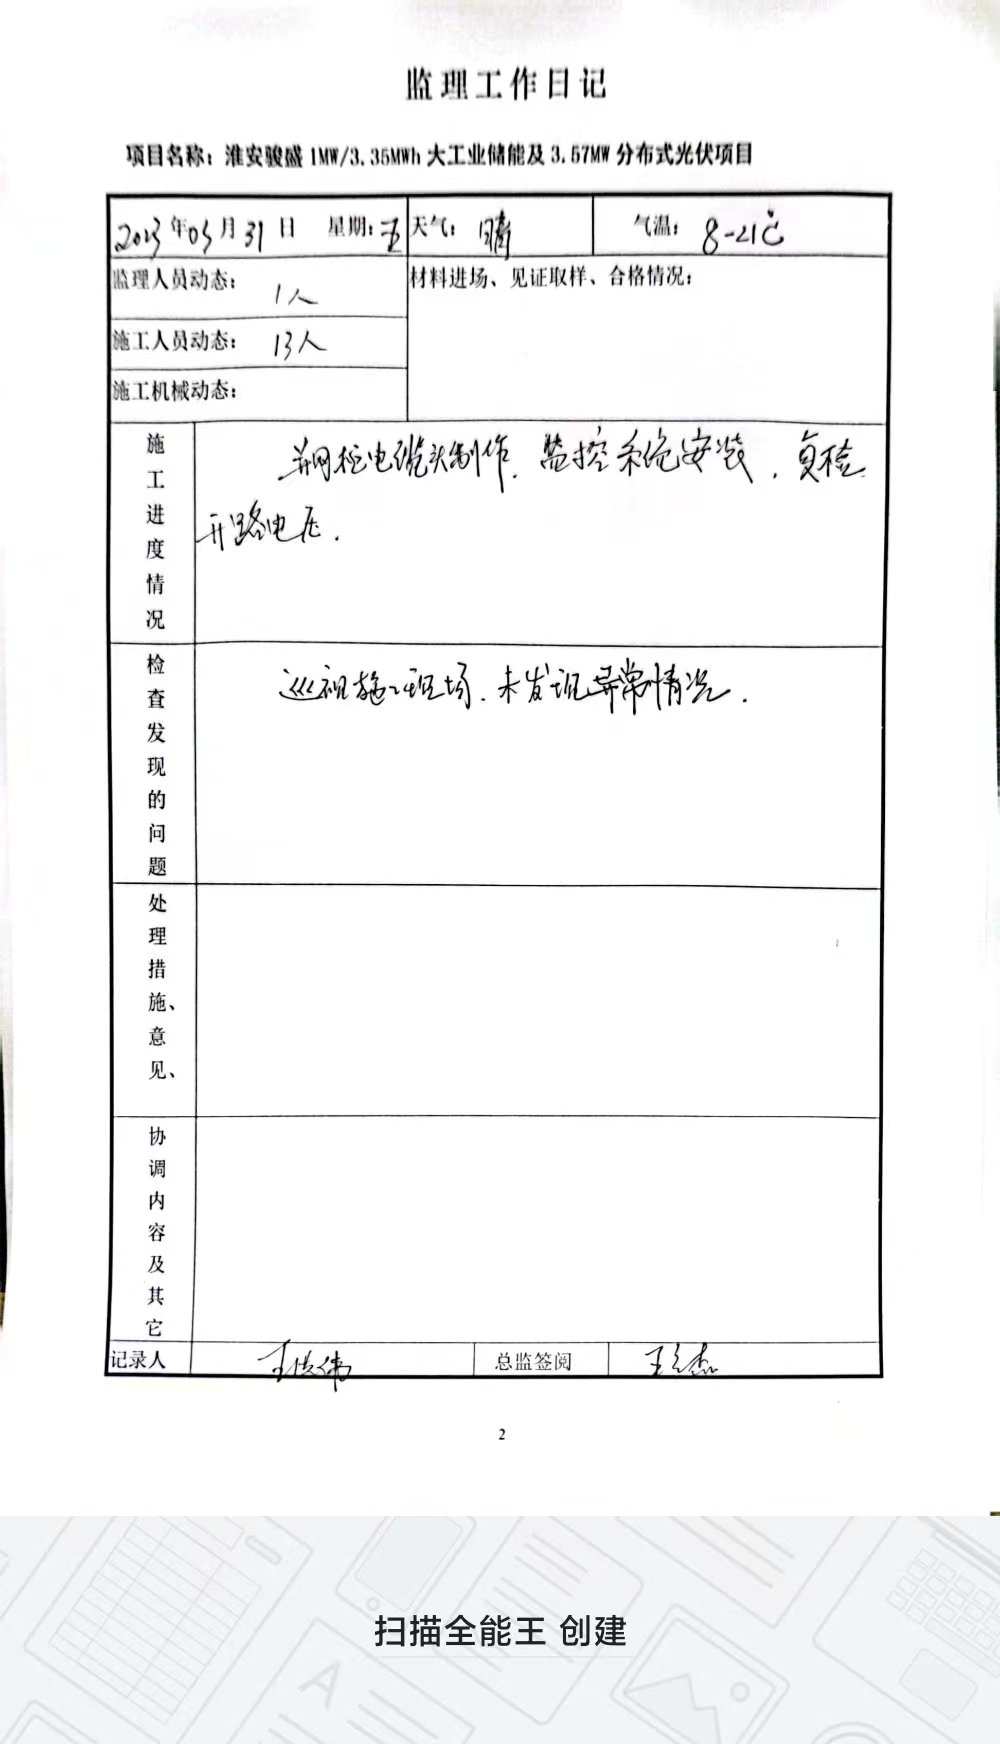 监理工作日记
项目名称：淮安骏盛 1MW/3.35MWh 大工业储能及 3.57MW 分布式光伏项目
2023年03月31日 星期：五 天气：晴 气温：8-21℃
监理人员动态： 1人 材料进场、见证取样、合格情况：
施工人员动态： 13人
施工机械动态：
施工进度情况
并网柜电缆头制作、监控系统安装，复检
开路电压.
检查发现的问题
巡视施工现场、未发现异常情况.
处理措施、意见、
协调内容及其它
记录人 总监签阅
2
扫描全能王 创建